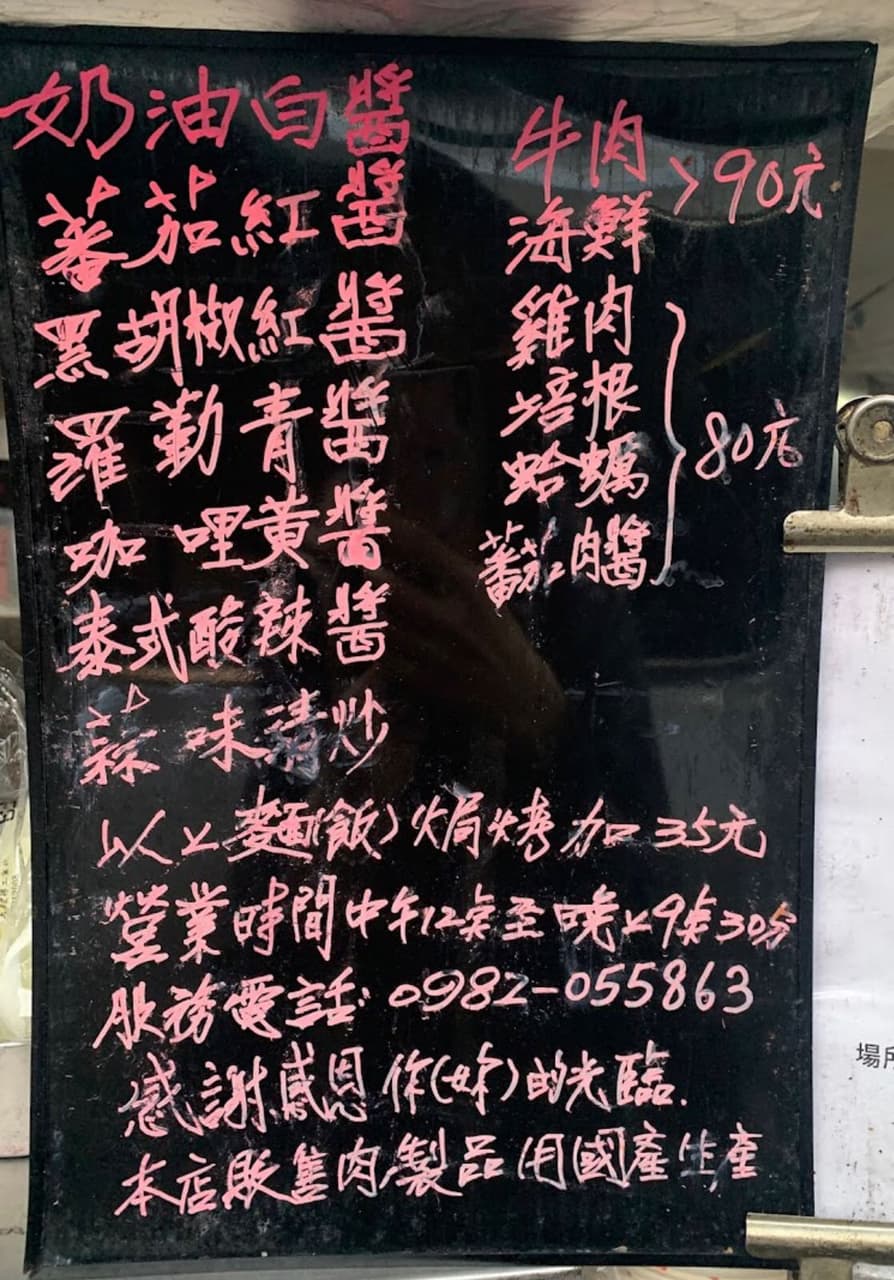 奶油白醬
蕃茄紅醬
黑胡椒紅醬
羅勤青醬
咖哩黃醬
泰式酸辣醬
蒜味清炒
牛肉
海鮮
>90元
雞肉
培根
蛤蠣
蕃茄肉醬
80元
以上麵(飯)焗烤加35元
營業時間中午12点至晚上9点30分
服務電話:0982-055863
感謝感恩你(妳)的光臨.
本店販售肉製品用國產生產
場所